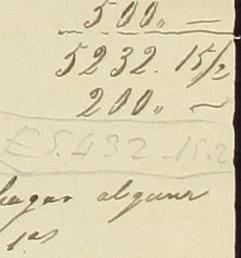 500. —
5232. 15/2
200. ~
£5.432_15.2
pagar alguns